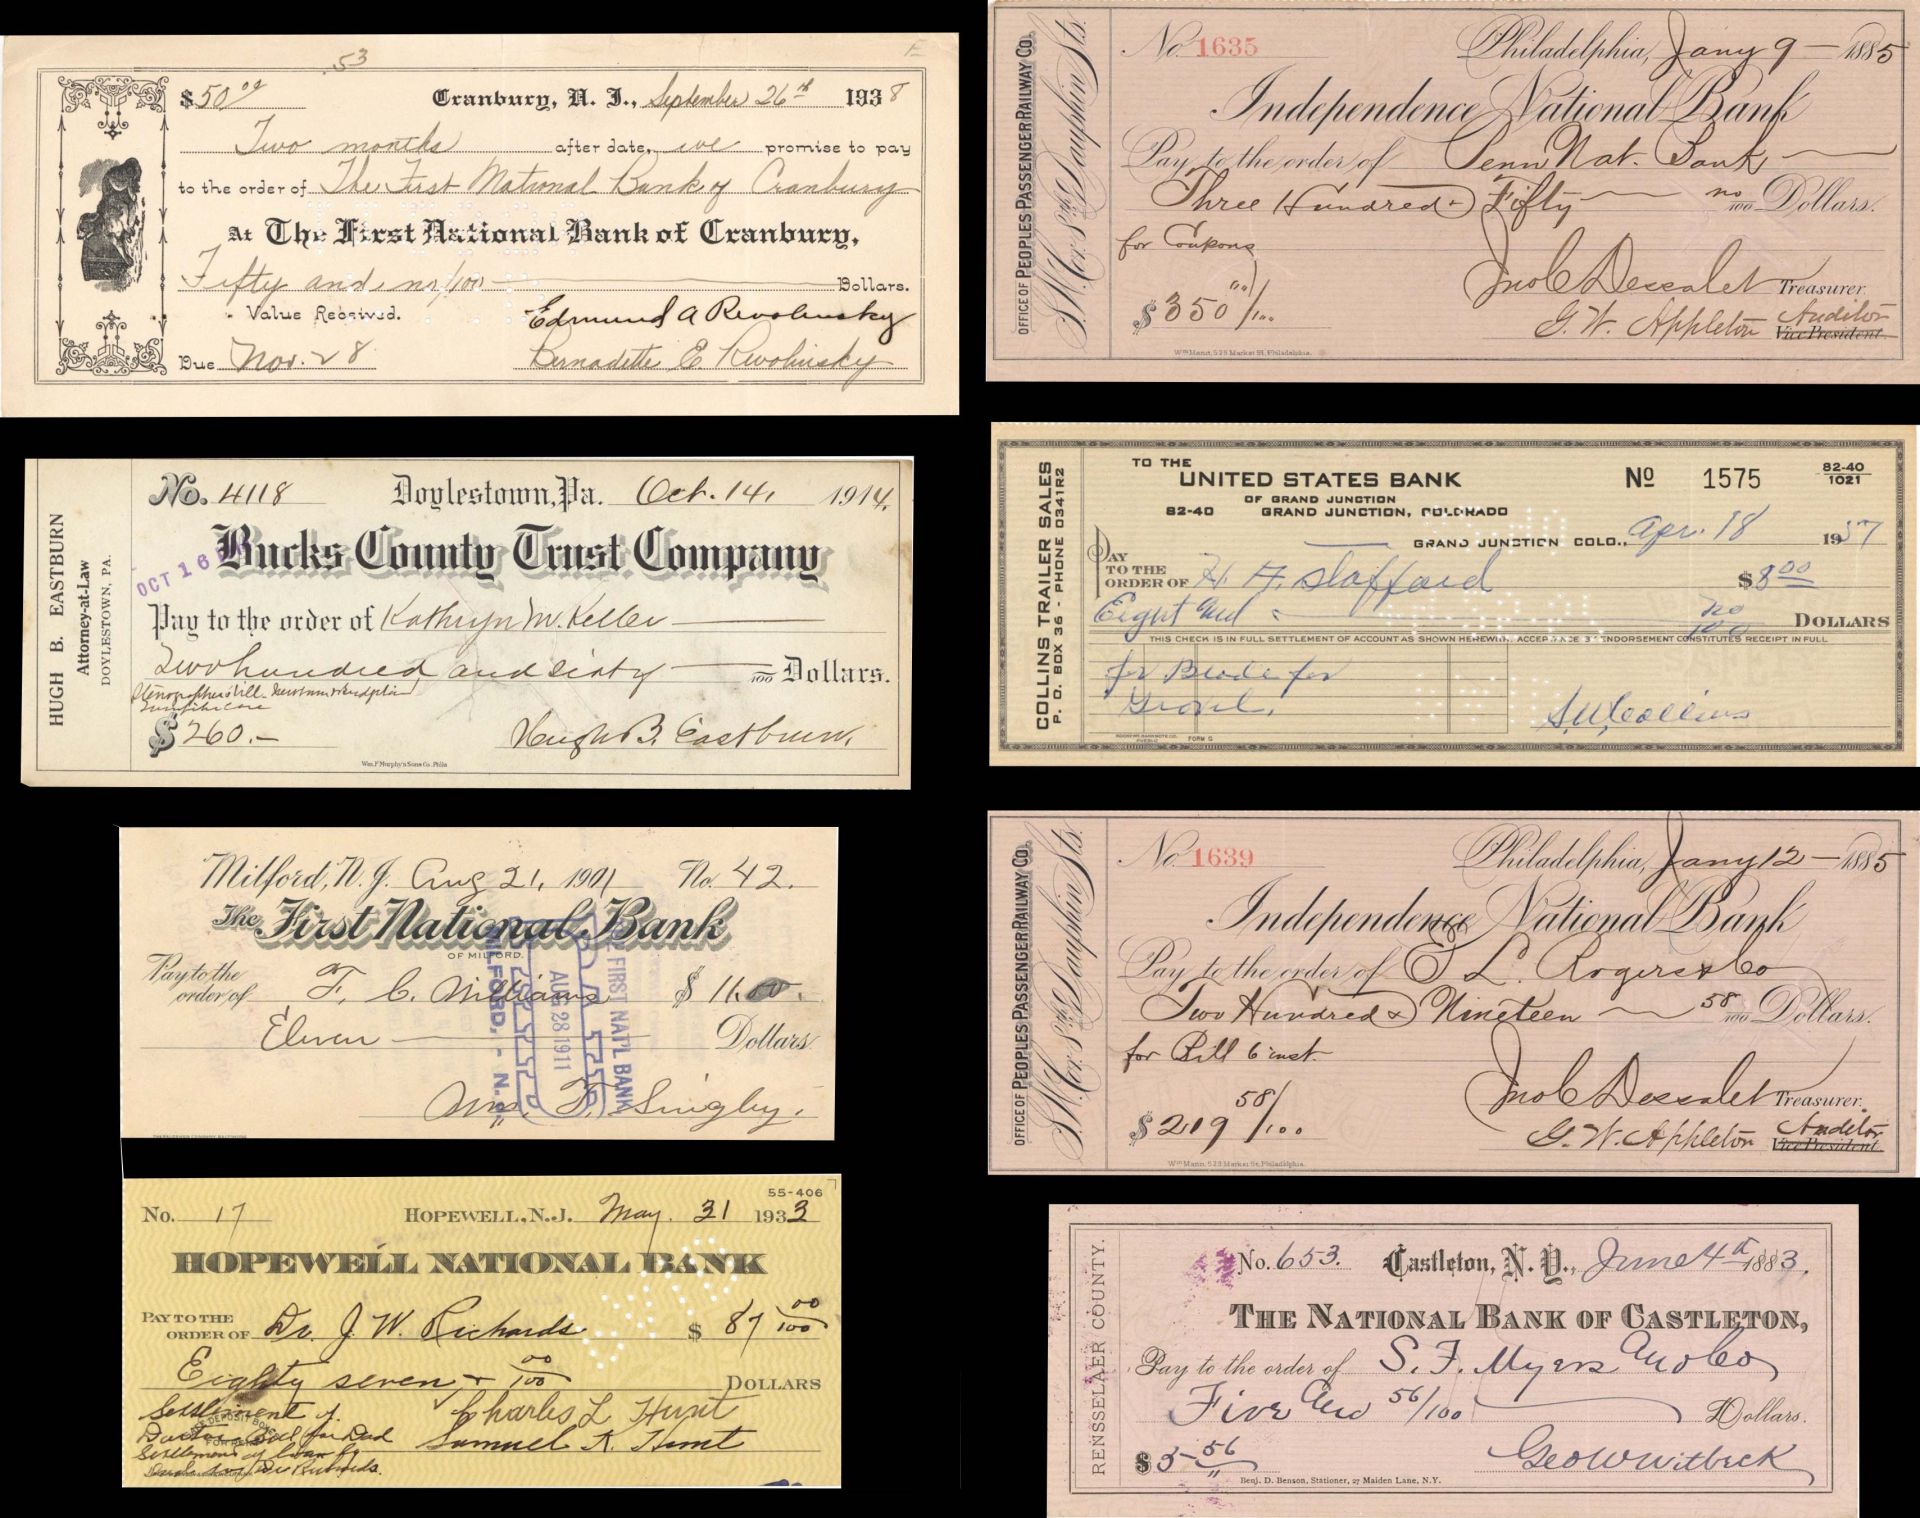 53
E
$50 00 Cranbury, N. J., September 26th 1938
Two months after date, we promise to pay
to the order of The First National Bank of Cranbury
At The First National Bank of Cranbury,
Fifty and no/100 Dollars.
Value Received. Edmund A Rewolinsky
Due Nov. 28 Bernadette E. Rewolinsky
HUGH B. EASTBURN
Attorney-at-Law
DOYLESTOWN, PA.
No. 4118 Doylestown, Pa. Oct. 14, 1914.
Bucks County Trust Company
OCT 16
Pay to the order of Kathryn M. Keller
Two hundred and sixty /100 Dollars.
$260.- Hugh B. Eastburn.
Wm. F. Murphy's Sons Co. Phila
Milford, N. J. Aug 21, 1901 No. 42.
The First National Bank
OF MILFORD.
Pay to the order of F. C. Williams $11.00.
Eleven Dollars
THE FIRST NAT'L BANK
AUG 28 1911
PAID
MILFORD, - N.J.
F. Singley.
55-406
No. 17 HOPEWELL, N.J. May. 31 1933
HOPEWELL NATIONAL BANK
PAY TO THE ORDER OF Dr. J. W. Richards $87 00/100
Eighty seven + 00/100 DOLLARS
Settlement of Charles L Hunt
Doctor Bill for Dad Samuel K. Hunt
Settlement of loan by
Dr Richards.
OFFICE OF PEOPLES PASSENGER RAILWAY CO.
S.W. Cor. 8th & Dauphin Sts.
No. 1635 Philadelphia, Jany 9 - 1885
Independence National Bank
Pay to the order of Penn Nat. Bank
Three Hundred & Fifty no/100 Dollars.
for Coupons
Jno C Dessalet Treasurer.
$350 00/100 G. W. Appleton Auditor
Vice President.
Wm Mann, 529 Market St, Philadelphia.
COLLINS TRAILER SALES
P. O. BOX 36 - PHONE 0341R2
TO THE
UNITED STATES BANK Nº 1575 82-40/1021
OF GRAND JUNCTION
82-40 GRAND JUNCTION, COLORADO
GRAND JUNCTION COLO., Apr. 18 1957
PAY TO THE ORDER OF H. F. Stafford $8 00
Eight and no/100 DOLLARS
THIS CHECK IS IN FULL SETTLEMENT OF ACCOUNT AS SHOWN HEREWITH. ACCEPTANCE BY ENDORSEMENT CONSTITUTES RECEIPT IN FULL
for Blade for
Collins
FORM G
OFFICE OF PEOPLES PASSENGER RAILWAY CO.
S.W. Cor. 8th & Dauphin Sts.
No. 1639 Philadelphia, Jany 12 - 1885
Independence National Bank
Pay to the order of E L. Rogers & Co
Two Hundred & Nineteen 58/100 Dollars.
for Bill 6 inst
Jno C Dessalet Treasurer.
$219 58/100 G. W. Appleton Auditor
Vice President.
Wm Mann, 529 Market St, Philadelphia.
RENSSELAER COUNTY.
No. 653. Castleton, N. Y., June 4th 1883.
THE NATIONAL BANK OF CASTLETON,
Pay to the order of S. F. Myers And Co
Five And 56/100 Dollars.
$5 56 Geo W Witbeck
Benj. D. Benson, Stationer, 27 Maiden Lane, N.Y.